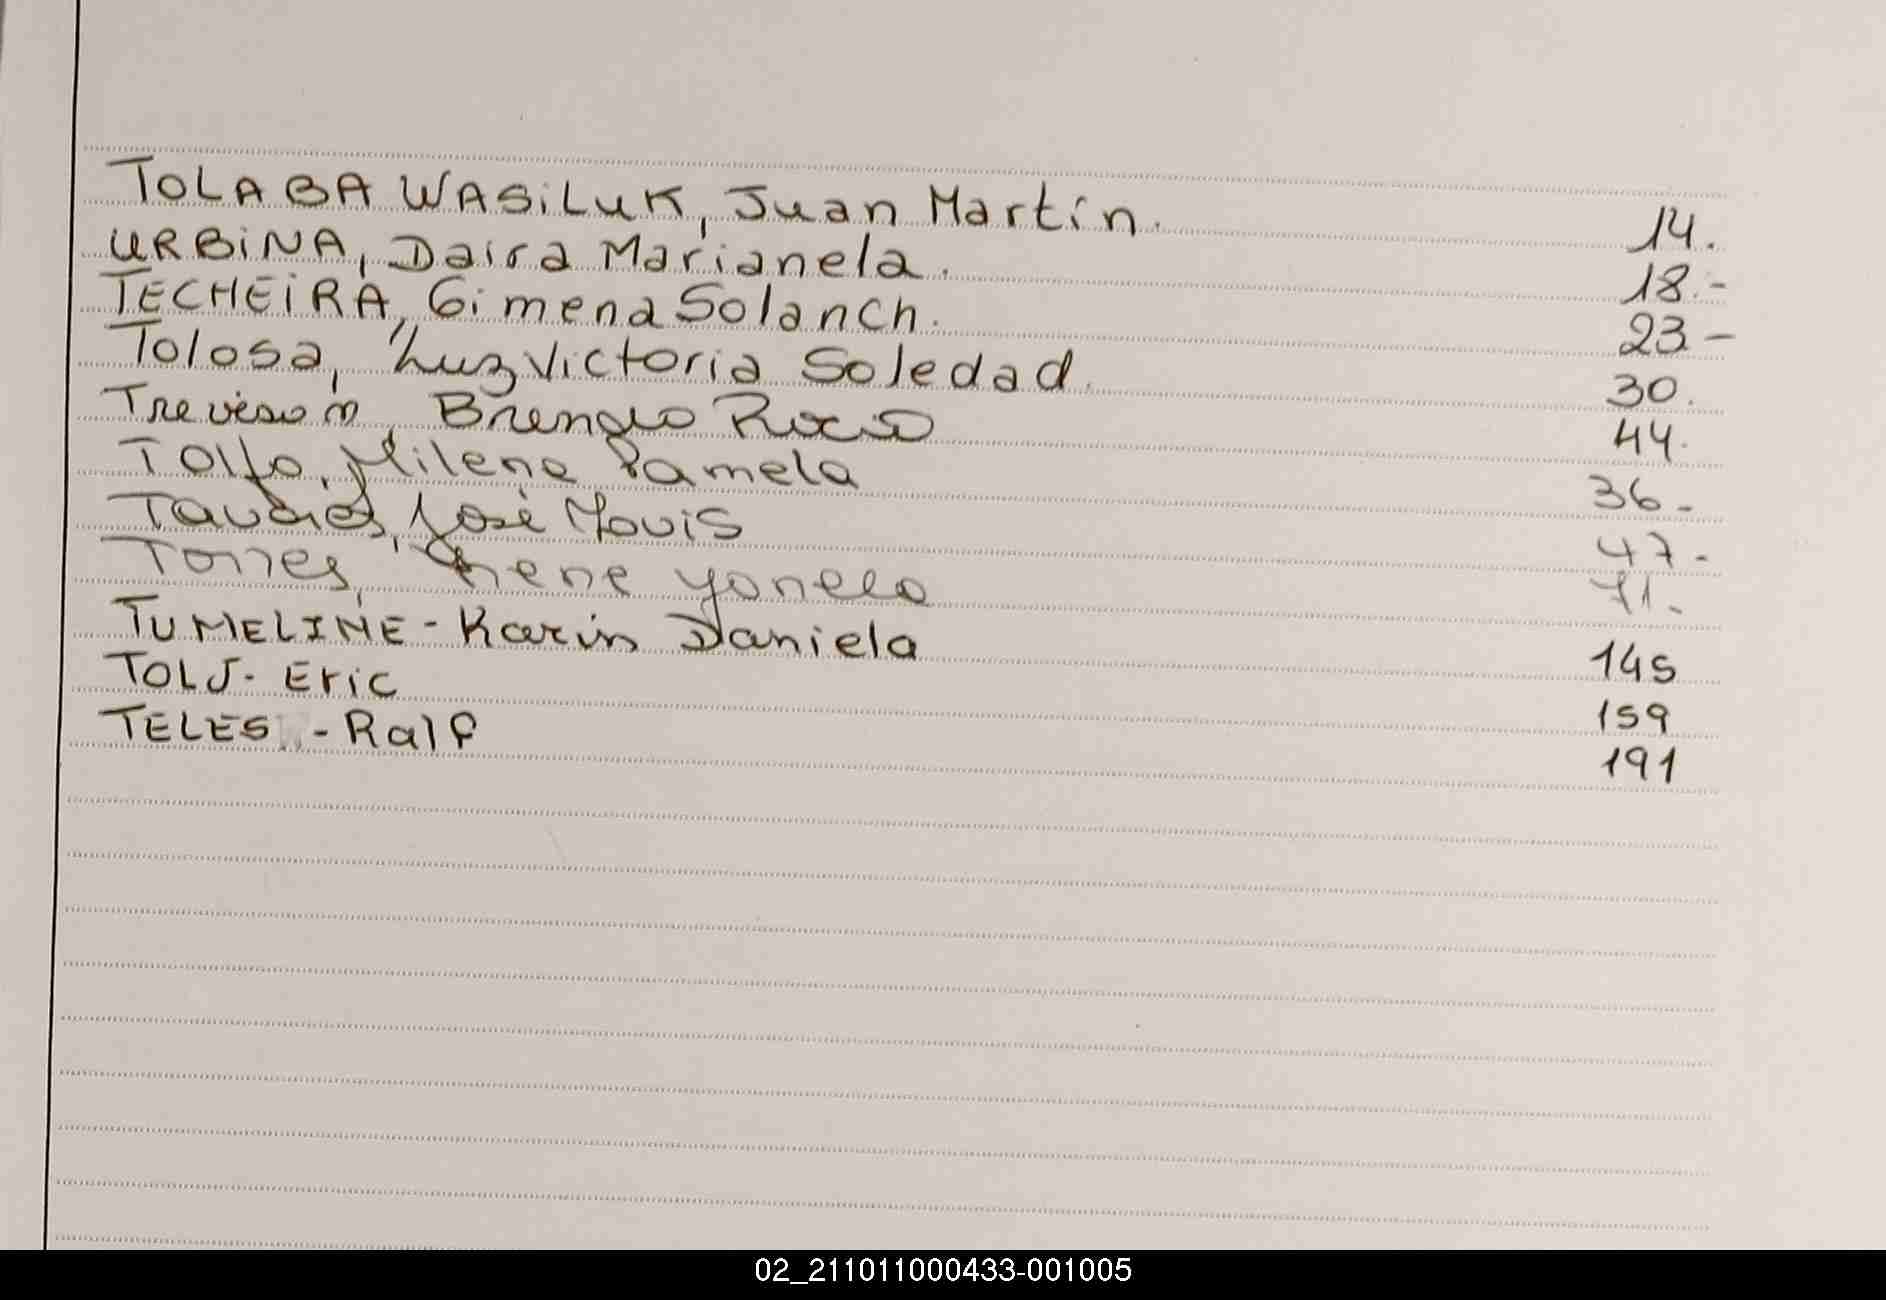 TOLABA WASiLUK, Juan Martín. 14.
URBiNA, Daira Marianela. 18.-
TECHEiRA, Gimena Solanch. 23-
Tolosa, Luz Victoria Soledad. 30.
Brenda Rocio 44.
Milene Pamela 36-
José 47-
Torres, Irene 71.
TUMELINE - Karin Daniela 145
Eric 159
TELES - Ralf 191
02_211011000433-001005